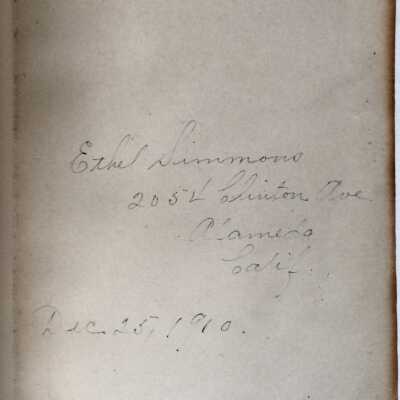 Ethel Simmons
2054 Clinton Ave.
Alameda
Calif.
Dec. 25, 1910.